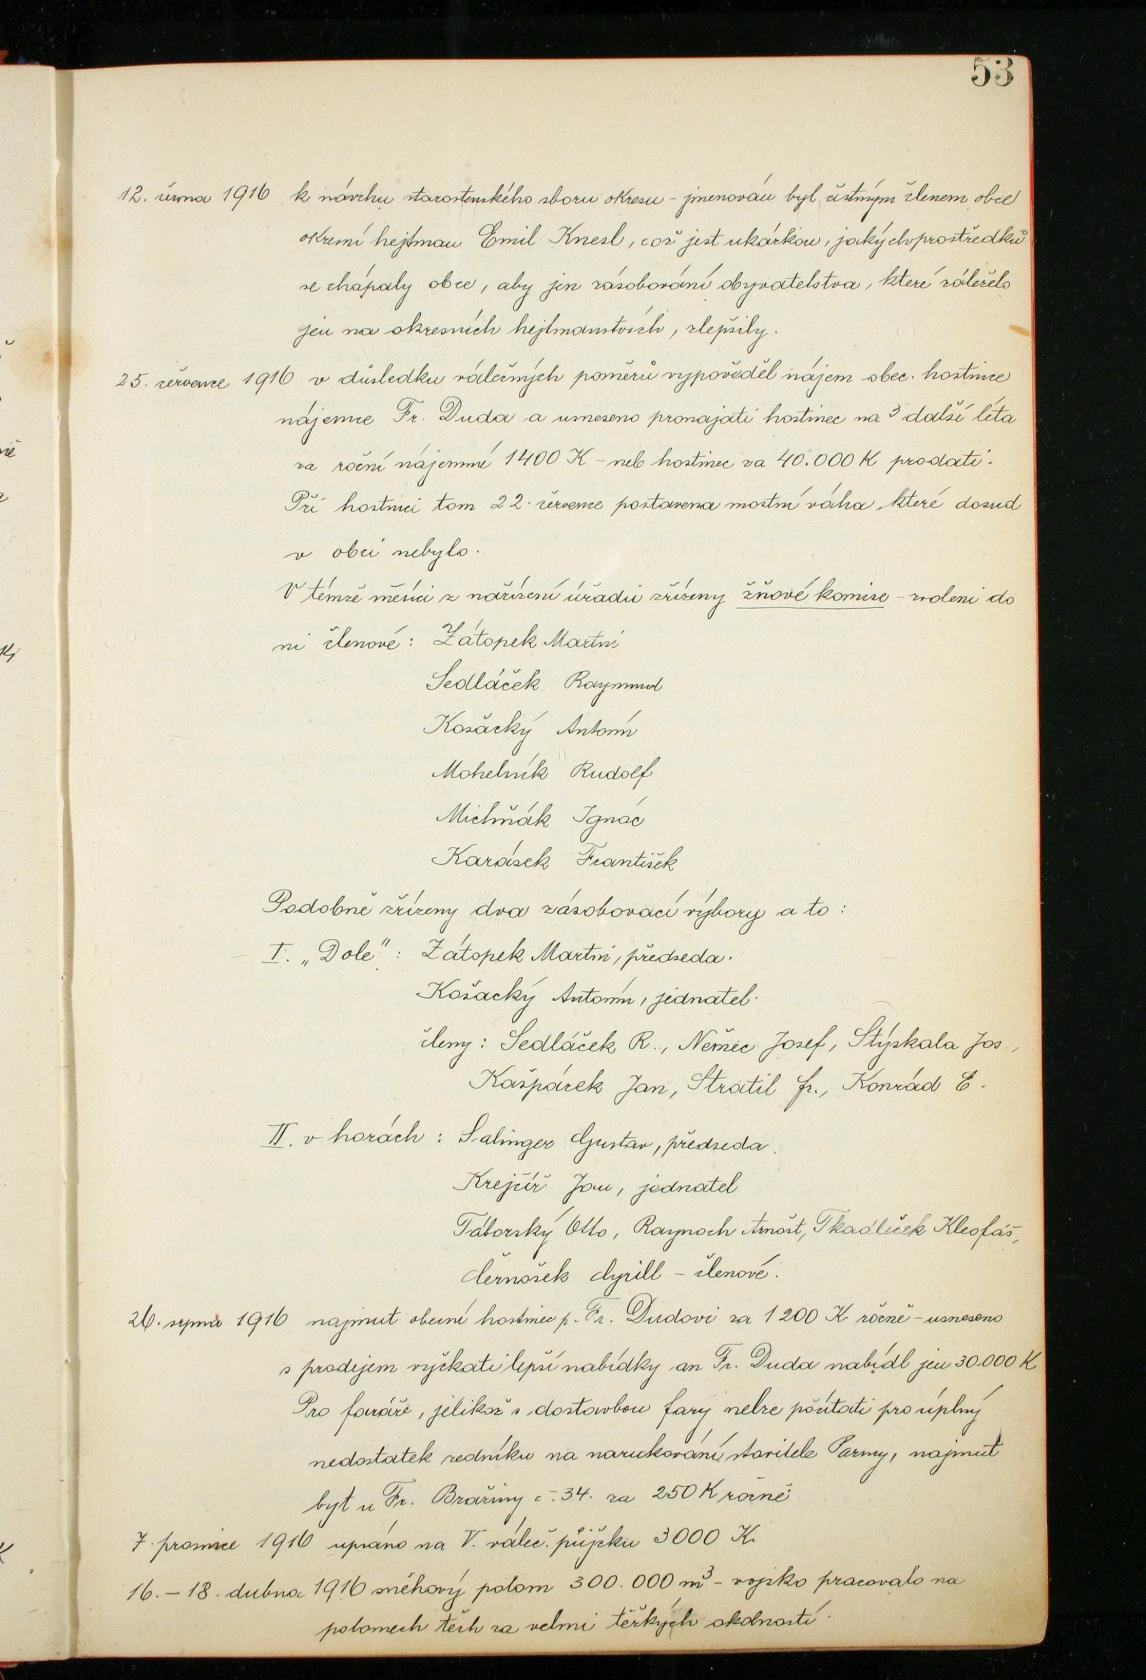 53
12. června 1916 k návrhu starostenského sboru okresu - jmenován byl čestným členem obce
okresní hejtman Emil Knesl, což jest ukázkou, jakých prostředků
se chápaly obce, aby jen zásobování obyvatelstva, které záleželo
jen na okresních hejtmanstvích, zlepšily.
25. července 1916 v důsledku válečných poměrů vypověděl nájem obec. hostince
nájemce Fr. Duda a usneseno pronajati hostinec na 3 další léta
za roční nájemné 1400 K - neb hostinec za 40.000 K prodati.
Při hostinci tom 22. července postavena mostní váha, které dosud
v obci nebylo.
V témže měsíci z nařízení úřadů zřízeny žňové komise - zvoleni do
ní členové: Zátopek Martin
Sedláček Raymund
Kosacký Antonín
Mohelník Rudolf
Michňák Ignác
Karásek František
Podobně zřízeny dva zásobovací výbory a to:
I. „Dole": Zátopek Martin, předseda.
Kosacký Antonín, jednatel.
členy: Sedláček R., Němec Josef, Stýskala Jos.,
Kašpárek Jan, Stratil Fr., Konrád E.
II. v horách: Salinger Gustav, předseda.
Krejčíř Jan, jednatel
Táborský Otto, Raynoch Arnošt, Tkadleček Kleofáš,
Černošek Cyrill - členové.
26. srpna 1916 najmut obecní hostinec p. Fr. Dudovi za 1200 K ročně - usneseno
s prodejem vyčkati lepší nabídky an Fr. Duda nabídl jen 30.000 K
Pro faráře, jelikož s dostavbou fary nelze počítati pro úplný
nedostatek zedníku na narukování stavitele Parmy, najmut
byt u Fr. Bražiny č. 34. za 250 K ročně
7. prosince 1916 upsáno na V. váleč. půjčku 3000 K.
16. - 18. dubna 1916 sněhový polom 300.000 m³ - vojsko pracovalo na
polomech těch za velmi těžkých okolností.